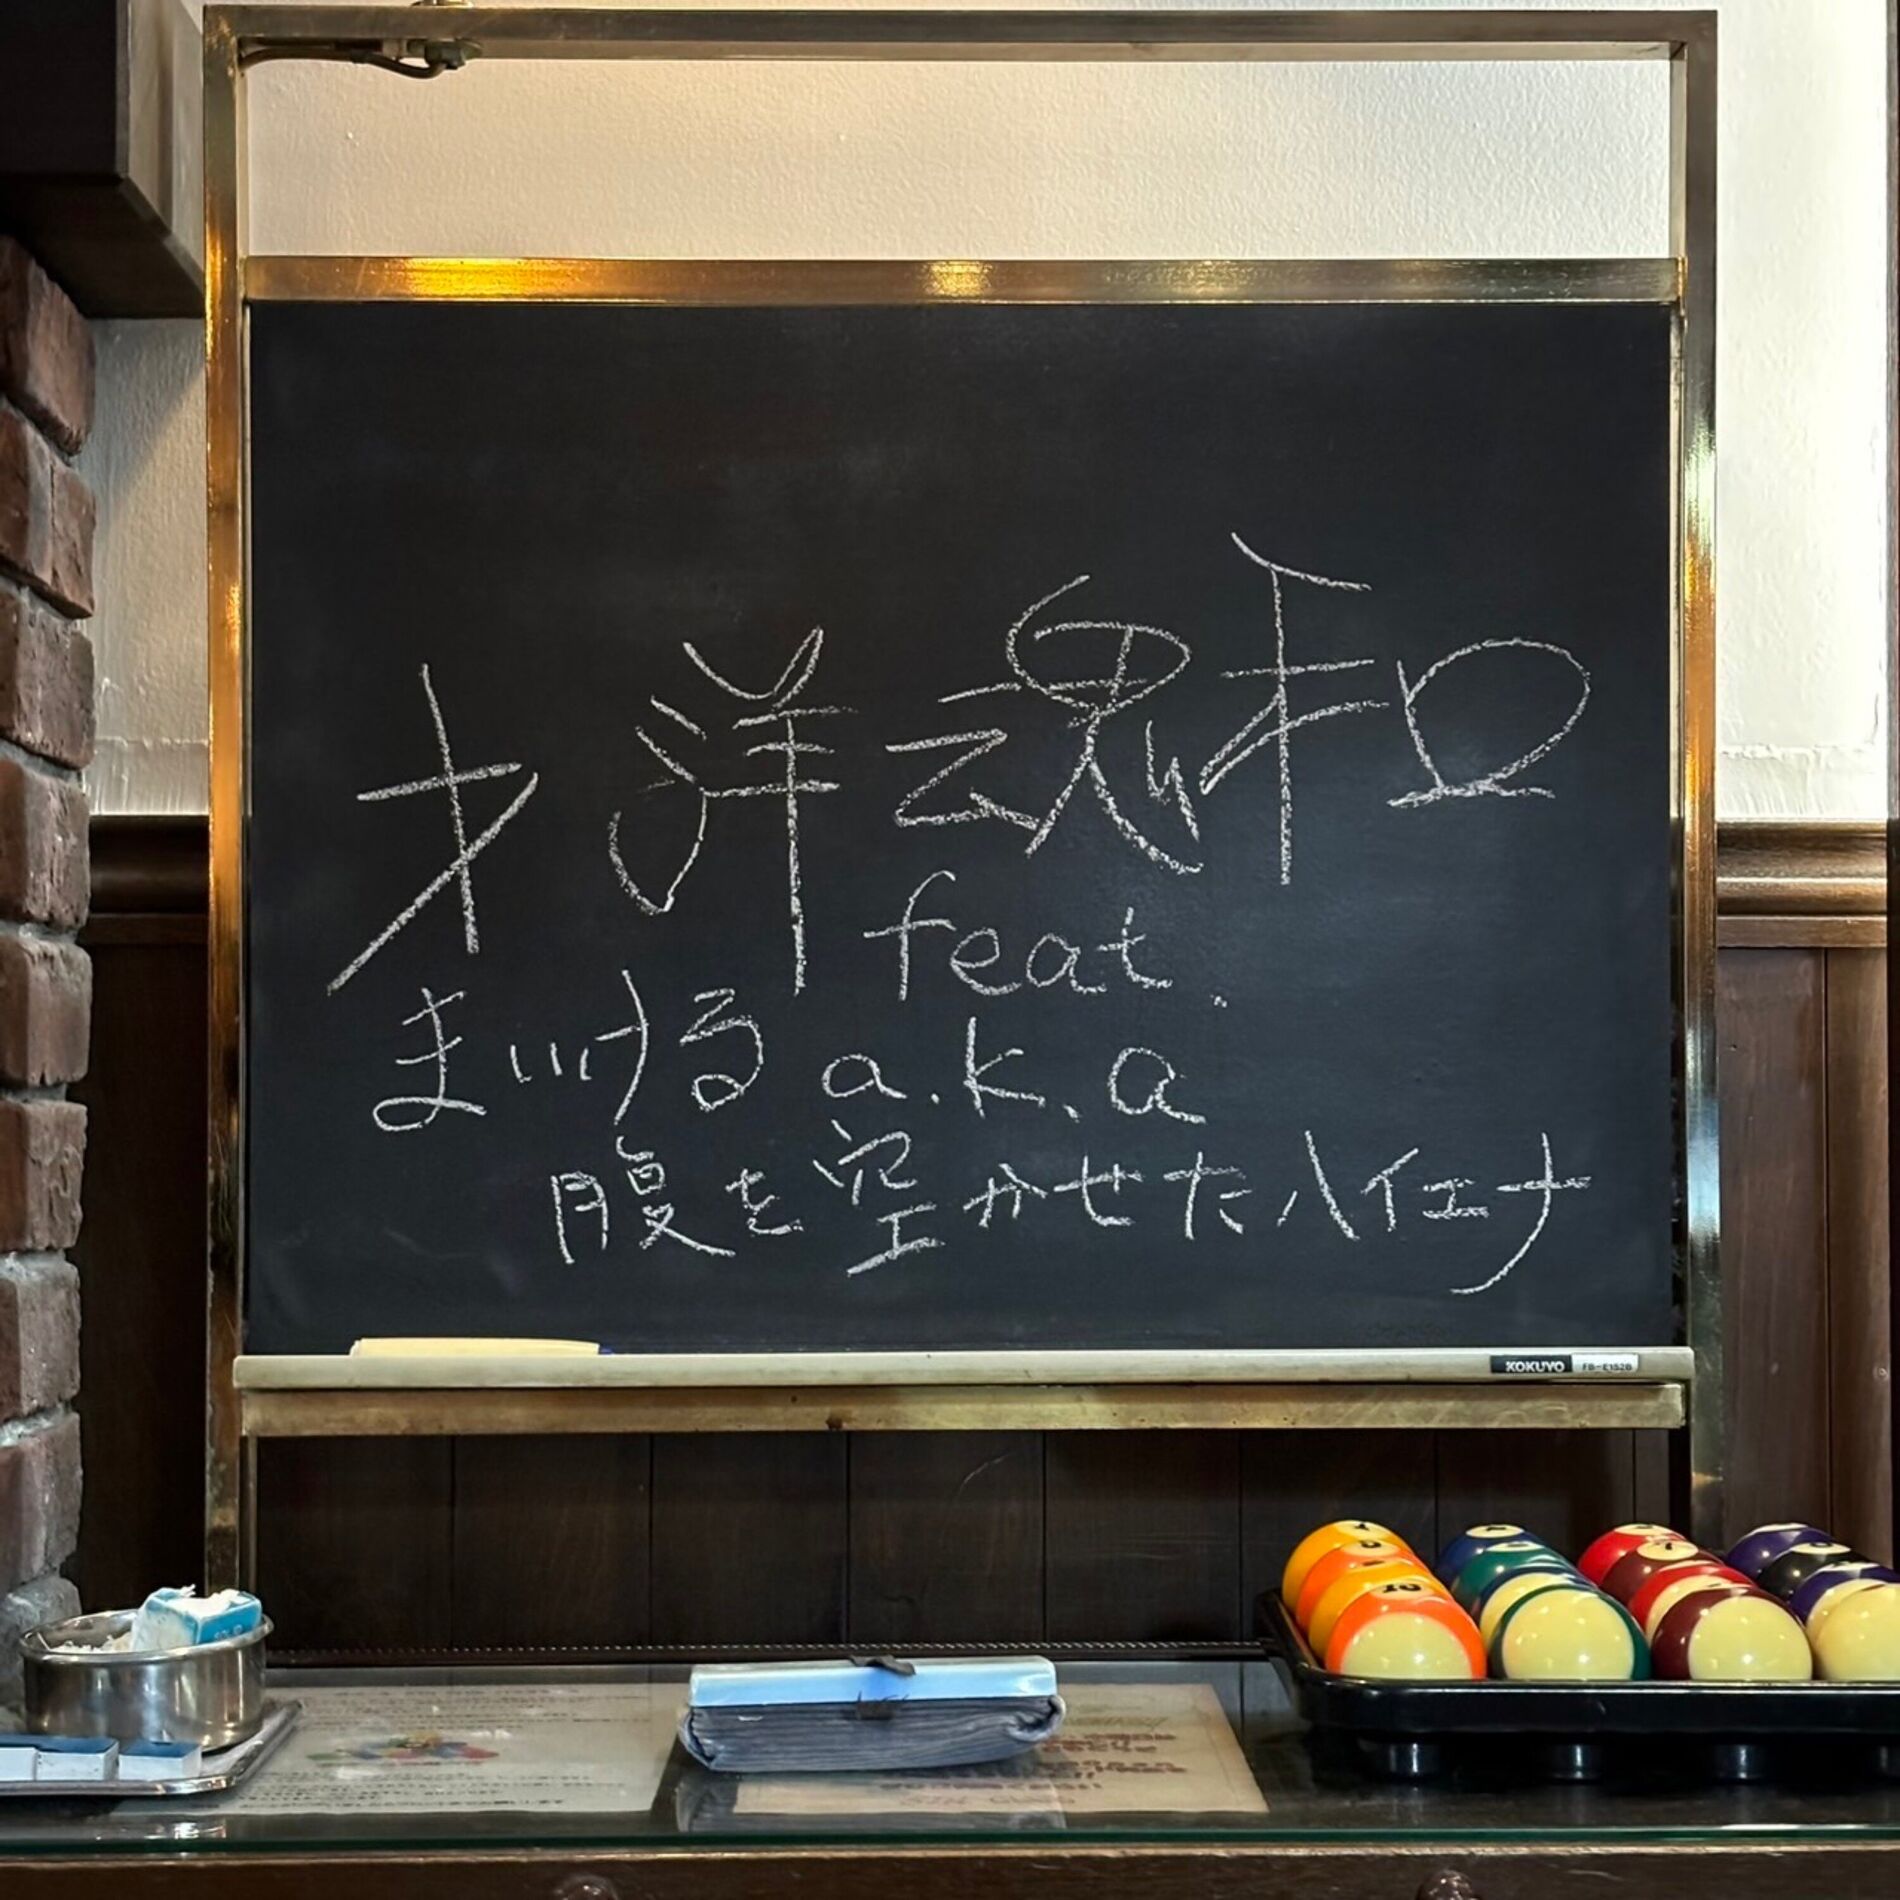 才洋魂和
feat.
まいける a.k.a
腹を空かせたハイエナ
KOKUYO FB-E152B